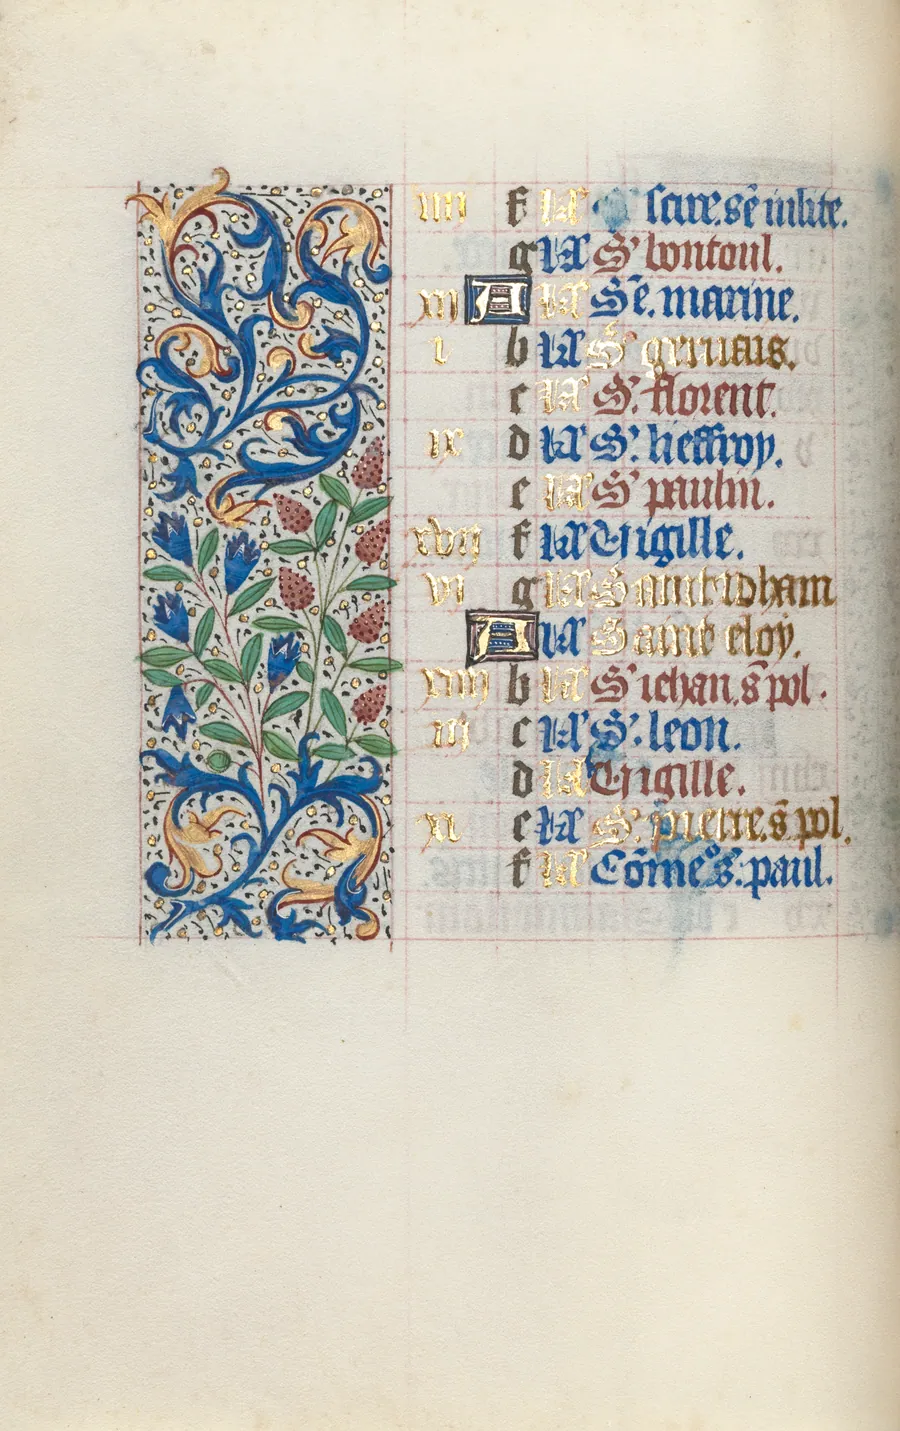 iiij f kł scire. sē iulite.
g kł S' bontoul.
xij A kł Sē. marine.
i b kł S' geruais.
c kł S' florent.
ix d kł S' lieffroy.
e kł S' paulin.
xvij f kł Vigille.
vi g kł Saint iehan
A kł Saint eloy.
xiiij b kł S' iehan. s̄ pol.
iij c kł S'. leon.
d kł Vigille.
xi e kł S'. pierre. s̄ pol.
f kł Cōme s̄. paul.